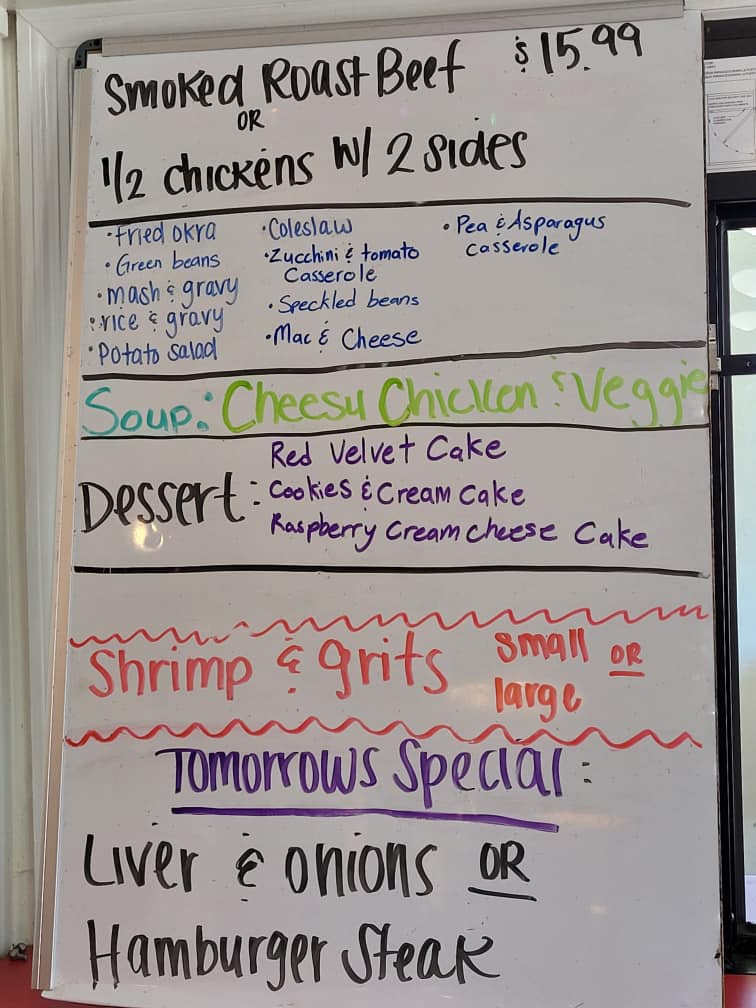 Smoked Roast Beef $15.99
OR
1/2 chickens w/ 2 sides
• fried okra
• Green beans
• mash & gravy
• rice & gravy
• Potato salad
• Coleslaw
• Zucchini & tomato
Casserole
• Speckled beans
• Mac & Cheese
• Pea & Asparagus
casserole
Soup: Cheesy Chicken & Veggie
Dessert:
Red Velvet Cake
Cookies & Cream Cake
Raspberry Cream cheese Cake
Shrimp & grits small OR
large
Tomorrows Special:
Liver & onions OR
Hamburger Steak